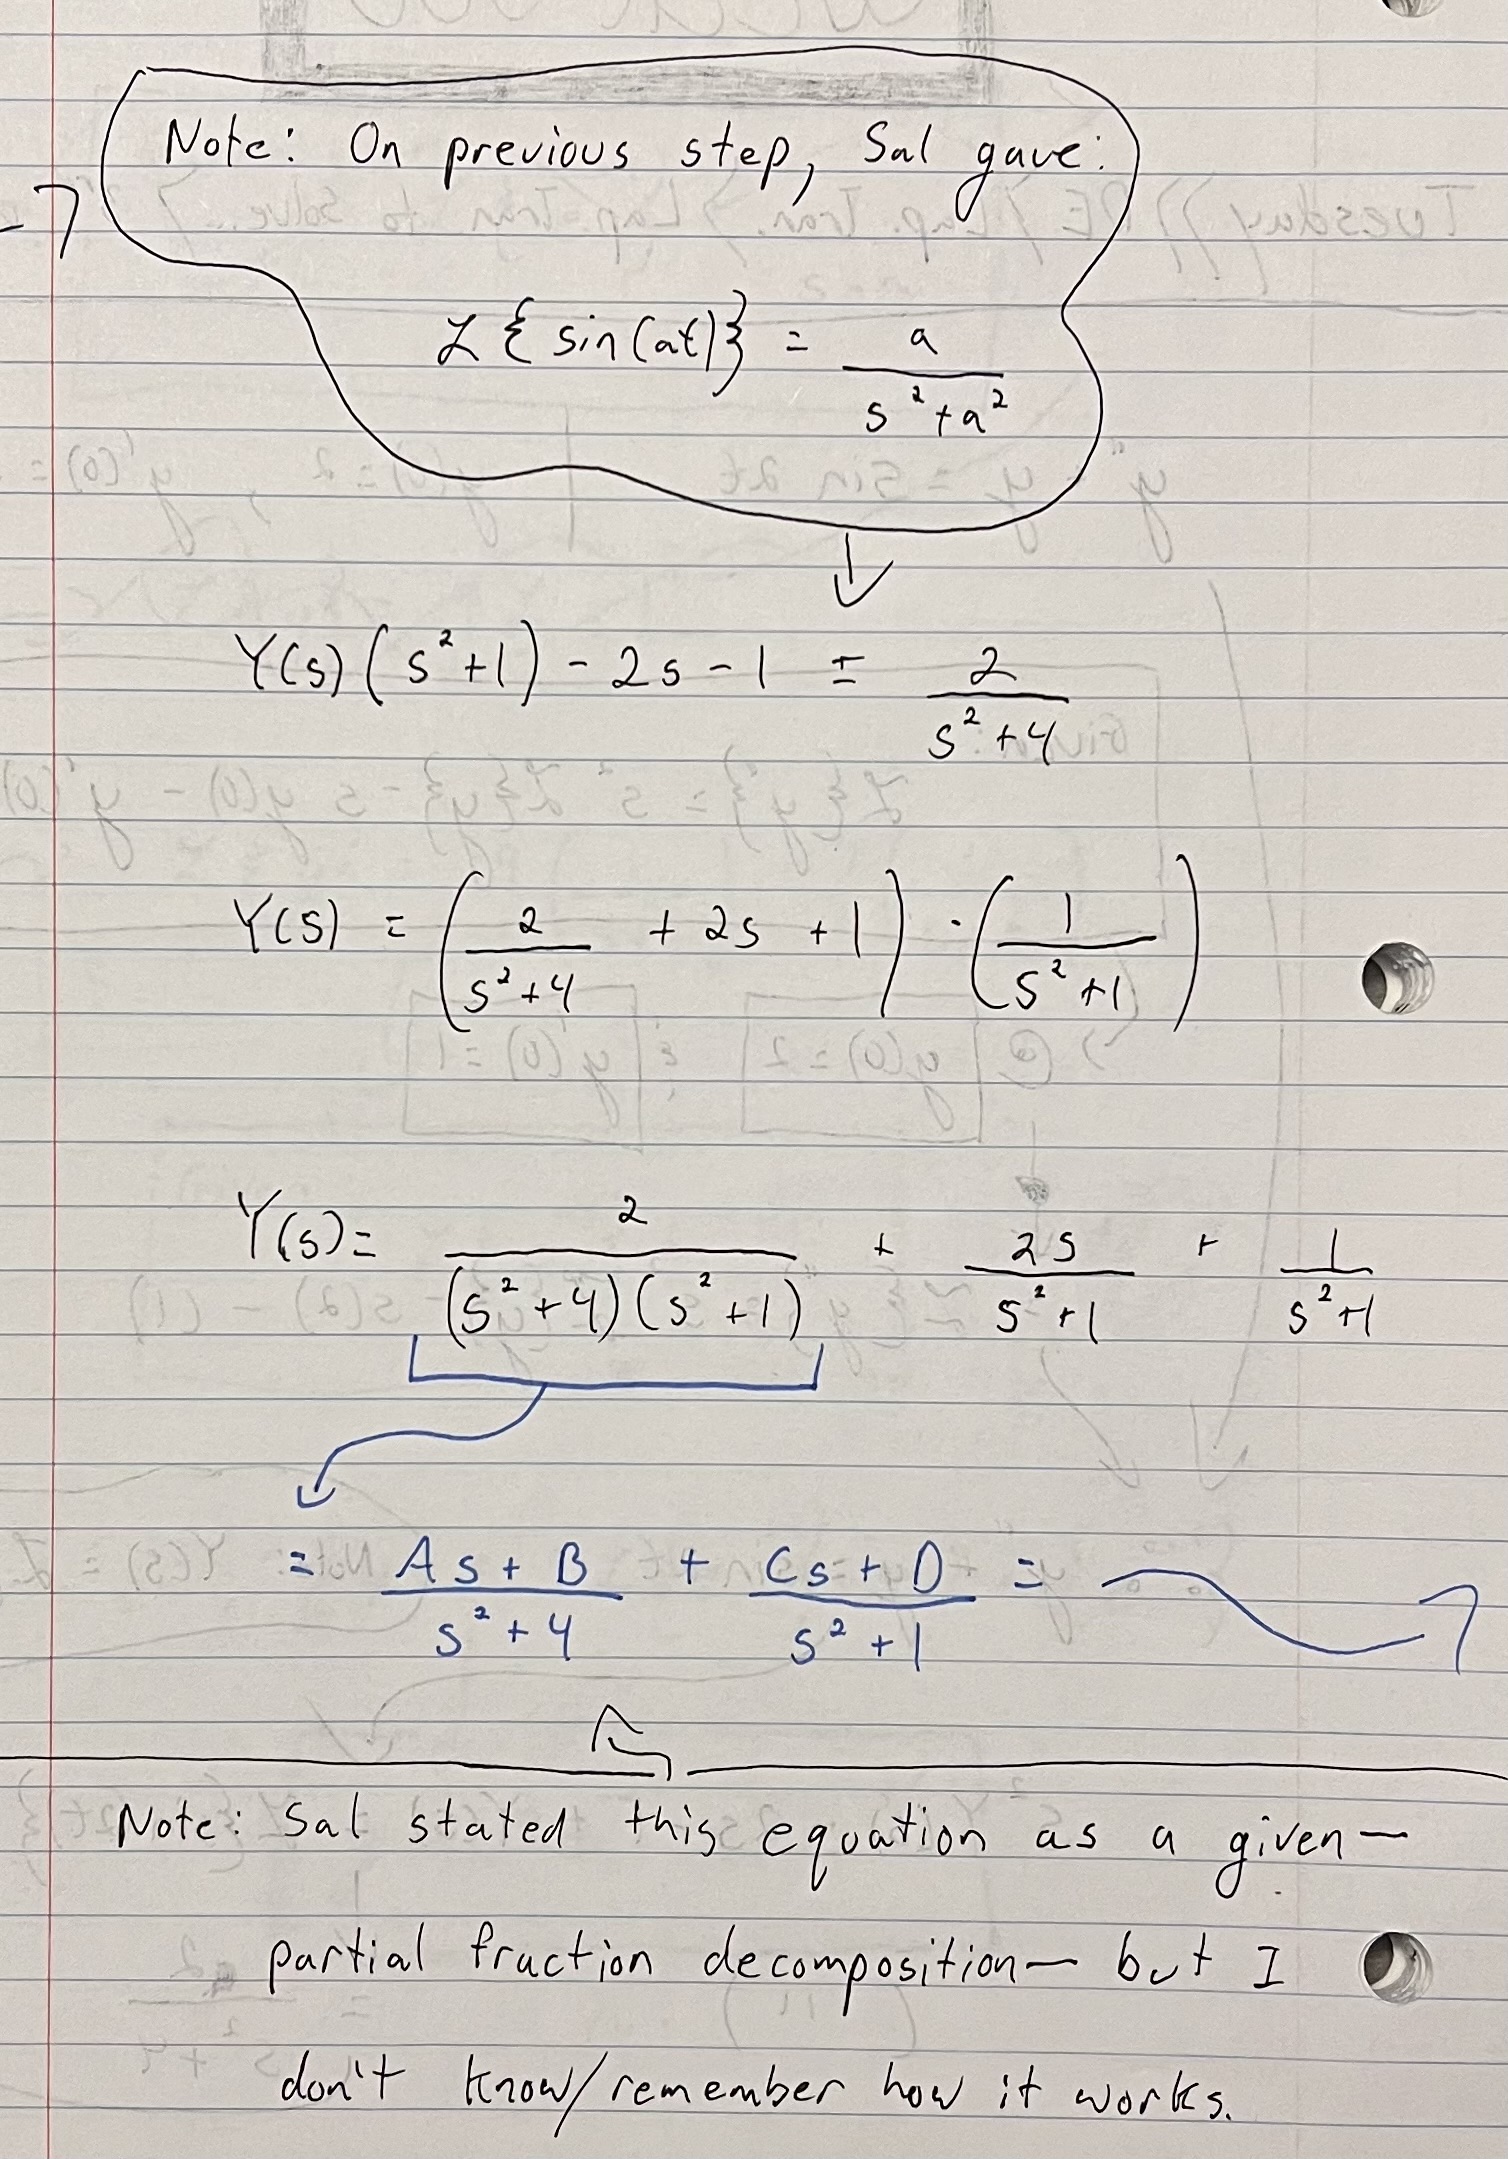 Note: On previous step, Sal gave:
ℒ{sin(at)} = a / (s² + a²)
Y(s)(s² + 1) - 2s - 1 = 2 / (s² + 4)
Y(s) = (2 / (s² + 4) + 2s + 1) · (1 / (s² + 1))
Y(s) = 2 / ((s² + 4)(s² + 1)) + 2s / (s² + 1) + 1 / (s² + 1)
= (As + B) / (s² + 4) + (Cs + D) / (s² + 1) =
Note: Sal stated this equation as a given—
partial fraction decomposition— but I
don't know/remember how it works.